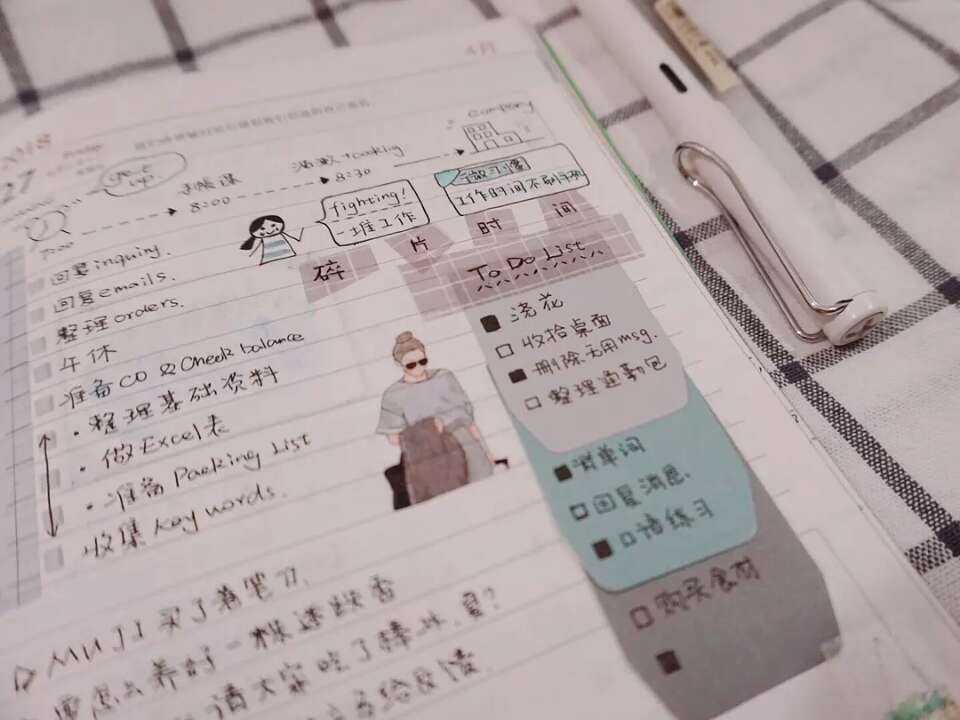 4月
2018
27
get up
company
8:00
8:30
7:00
fighting!
一堆工作
微习惯
工作时间不刷手机
碎片时间
To Do List
回复inquiry.
回复emails.
整理orders.
午休
准备CO & Check balance
· 整理基础资料
· 做Excel表
· 准备Packing List
收集Key words.
浇花
收拾桌面
删除无用msg.
整理通勤包
背单词
回复消息
口语练习
购买食材
MUJI买了着笔刀.
要怎么养好一株迷迭香
请大家吃了棒冰.夏?